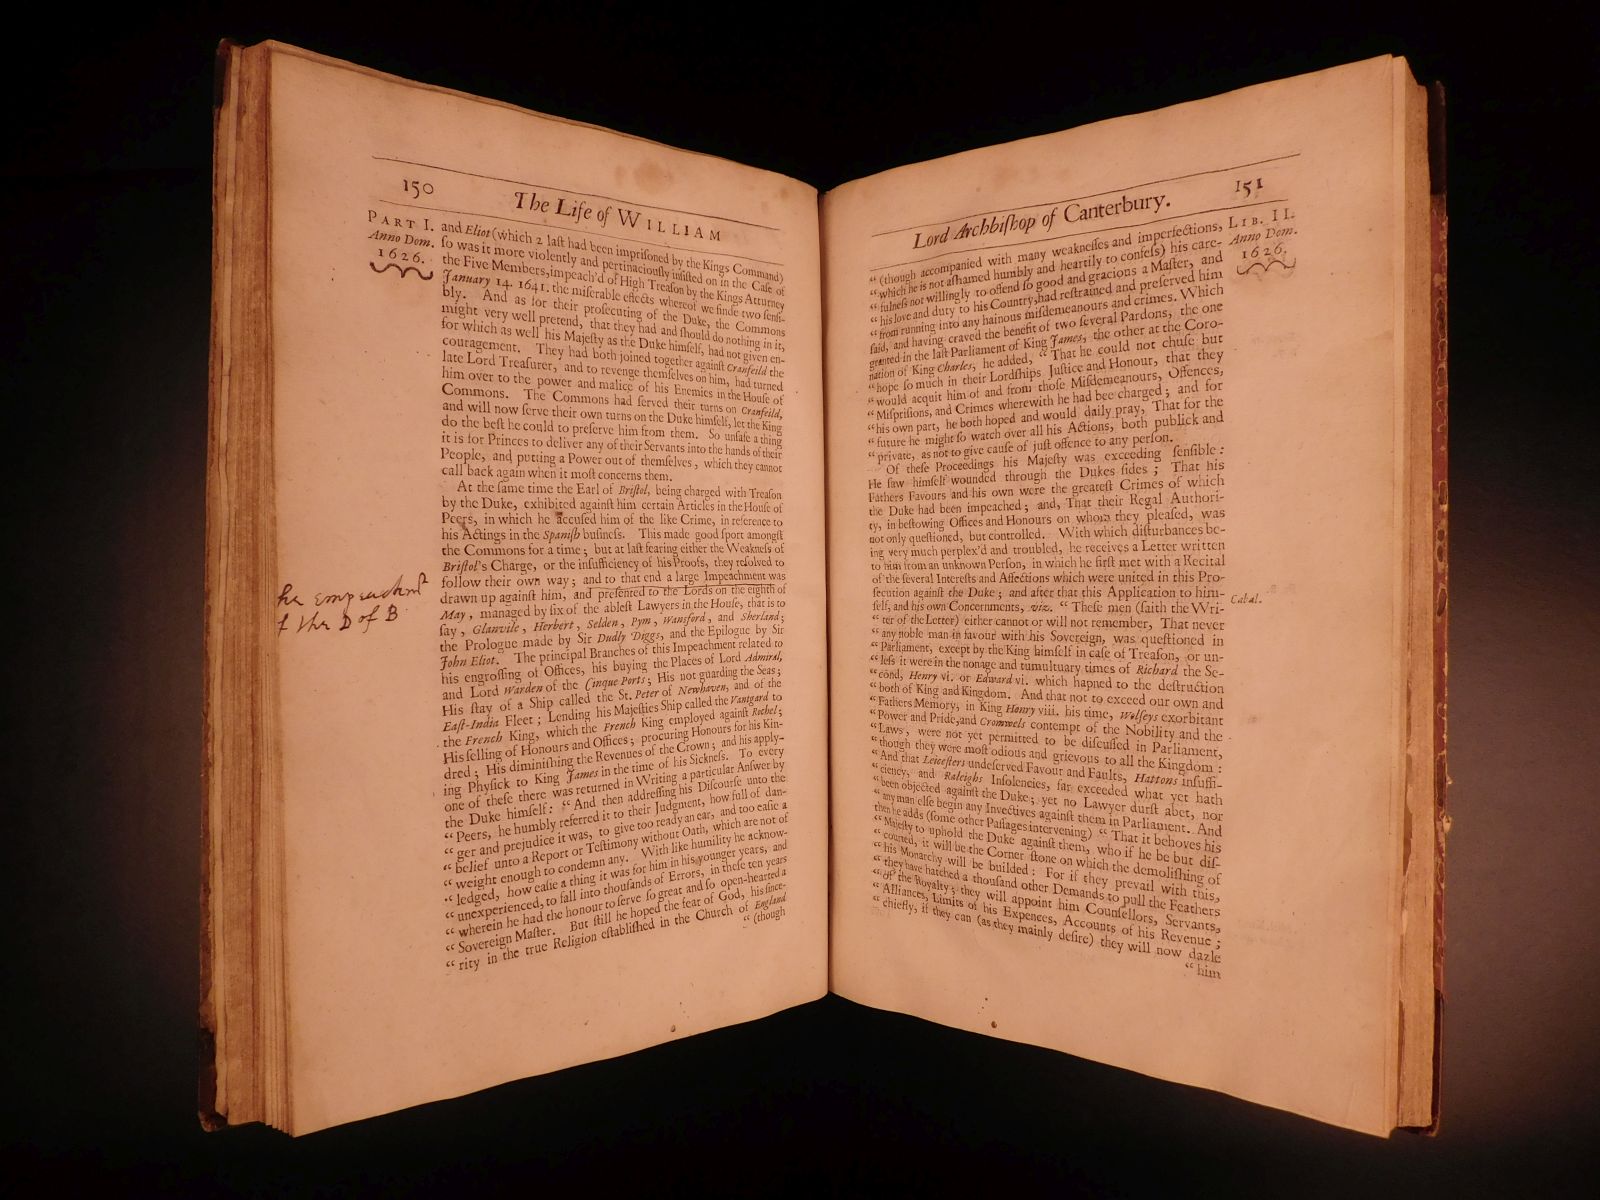 150
The Life of WILLIAM
PART I.
Anno Dom.
1626.
and Eliot (which 2 laſt had been impriſoned by the Kings Command)
ſo was it more violently and pertinaciouſly inſiſted on in the Caſe of
the Five Members, impeach'd of High Treaſon by the Kings Atturney
January 14. 1641. the miſerable effects whereof we finde two ſenſi-
bly. And as for their proſecuting of the Duke, the Commons
might very well pretend, that they had and ſhould do nothing in it,
for which as well his Majeſty as the Duke himſelf, had not given en-
couragement. They had both joined together againſt Cranfeild the
late Lord Treaſurer, and to revenge themſelves on him, had turned
him over to the power and malice of his Enemies in the Houſe of
Commons. The Commons had ſerved their turns on Cranfeild,
and will now ſerve their own turns on the Duke himſelf, let the King
do the beſt he could to preſerve him from them. So unſafe a thing
it is for Princes to deliver any of their Servants into the hands of their
People, and putting a Power out of themſelves, which they cannot
call back again when it moſt concerns them.
At the ſame time the Earl of Briſtol, being charged with Treaſon
by the Duke, exhibited againſt him certain Articles in the Houſe of
Peers, in which he accuſed him of the like Crime, in reference to
his Actings in the Spaniſh buſineſs. This made good ſport amongſt
the Commons for a time; but at laſt fearing either the Weakneſs of
Briſtol's Charge, or the inſufficiency of his Proofs, they reſolved to
follow their own way; and to that end a large Impeachment was
drawn up againſt him, and preſented to the Lords on the eighth of
May, managed by ſix of the ableſt Lawyers in the Houſe, that is to
ſay, Glanvile, Herbert, Selden, Pym, Wansford, and Sherland;
the Prologue made by Sir Dudly Diggs, and the Epilogue by Sir
John Eliot. The principal Branches of this Impeachment related to
his engroſſing of Offices, his buying the Places of Lord Admiral,
and Lord Warden of the Cinque Ports; His not guarding the Seas;
His ſtay of a Ship called the St. Peter of Newhaven, and of the
Eaſt-India Fleet; Lending his Majeſties Ship called the Vantgard to
the French King, which the French King employed againſt Rochel;
His ſelling of Honours and Offices; procuring Honours for his Kin-
dred; His diminiſhing the Revenues of the Crown; and his apply-
ing Phyſick to King James in the time of his Sickneſs. To every
one of theſe there was returned in Writing a particular Anſwer by
the Duke himſelf: “And then addreſſing his Diſcourſe unto the
“Peers, he humbly referred it to their Judgment, how full of dan-
“ger and prejudice it was, to give too ready an ear, and too eaſie a
“belief unto a Report or Teſtimony without Oath, which are not of
“weight enough to condemn any. With like humility he acknow-
“ledged, how eaſie a thing it was for him in his younger years, and
“unexperienced, to fall into thouſands of Errors, in theſe ten years
“wherein he had the honour to ſerve ſo great and ſo open-hearted a
“Sovereign Maſter. But ſtill he hoped the fear of God, his ſince-
“rity in the true Religion eſtabliſhed in the Church of England
“(though
he empeachmt
f the D of B
Lord Archbiſhop of Canterbury.
151
LIB. II.
Anno Dom.
1626.
“(though accompanied with many weakneſſes and imperfections,
“which he is not aſhamed humbly and heartily to confeſs) his care-
“fulneſs not willingly to offend ſo good and gracious a Maſter, and
“his love and duty to his Country, had reſtrained and preſerved him
“from running into any hainous miſdemeanours and crimes. Which
ſaid, and having craved the benefit of two ſeveral Pardons, the one
granted in the laſt Parliament of King James, the other at the Coro-
nation of King Charles, he added, “That he could not chuſe but
“hope ſo much in their Lordſhips Juſtice and Honour, that they
“would acquit him of and from thoſe Miſdemeanours, Offences,
“Miſpriſions, and Crimes wherewith he had bee charged; and for
“his own part, he both hoped and would daily pray, That for the
“future he might ſo watch over all his Actions, both publick and
“private, as not to give cauſe of juſt offence to any perſon.
Of theſe Proceedings his Majeſty was exceeding ſenſible:
He ſaw himſelf wounded through the Dukes ſides; That his
Fathers Favours and his own were the greateſt Crimes of which
the Duke had been impeached; and, That their Regal Authori-
ty, in beſtowing Offices and Honours on whom they pleaſed, was
not only queſtioned, but controlled. With which diſturbances be-
ing very much perplex'd and troubled, he receives a Letter written
to him from an unknown Perſon, in which he firſt met with a Recital
of the ſeveral Intereſts and Affections which were united in this Pro-
ſecution againſt the Duke; and after that this Application to him-
ſelf, and his own Concernments, viz. “Theſe men (ſaith the Wri-
“ter of the Letter) either cannot or will not remember, That never
“any noble man in favour with his Sovereign, was queſtioned in
“Parliament, except by the King himſelf in caſe of Treaſon, or un-
“leſs it were in the nonage and tumultuary times of Richard the Se-
“cond, Henry vi. or Edward vi. which hapned to the deſtruction
“both of King and Kingdom. And that not to exceed our own and
“Fathers Memory, in King Henry viii. his time, Wolſeys exorbitant
“Power and Pride, and Cromwels contempt of the Nobility and the
“Laws, were not yet permitted to be diſcuſſed in Parliament,
“though they were moſt odious and grievous to all the Kingdom:
“And that Leiceſters undeſerved Favour and Faults, Hattons inſuffi-
“ciency, and Raleighs Inſolencies, far exceeded what yet hath
“been objected againſt the Duke; yet no Lawyer durſt abet, nor
“any man elſe begin any Invectives againſt them in Parliament. And
then he adds (ſome other Paſſages intervening) “That it behoves his
“Majeſty to uphold the Duke againſt them, who if he be but diſ-
“counted, it will be the Corner ſtone on which the demoliſhing of
“his Monarchy will be builded: For if they prevail with this,
“they have hatched a thouſand other Demands to pull the Feathers
“of the Royalty; they will appoint him Counſellors, Servants,
“Alliances, Limits of his Expences, Accounts of his Revenue;
“chiefly, if they can (as they mainly deſire) they will now dazle
“him
Cabal.